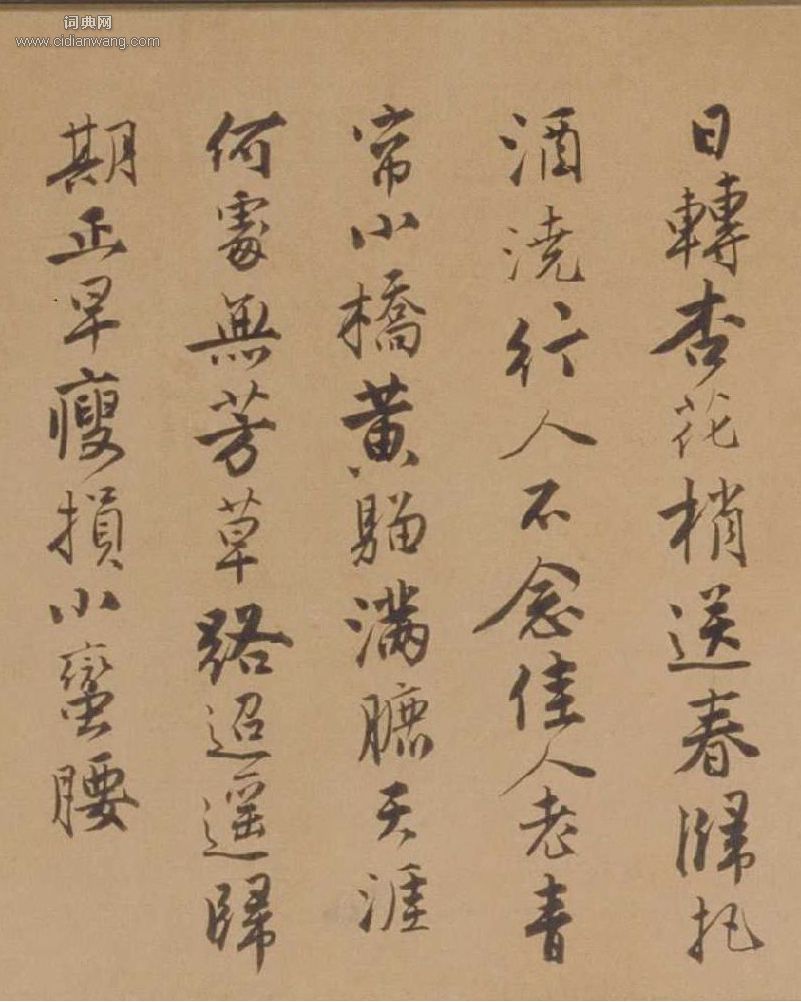 词典网
www.cidianwang.com
日轉杏花梢送春歸把
酒澆行人不念佳人老青
帘小橋黃滿天涯
何處無芳草路迢遙歸
期正早瘦損小蠻腰